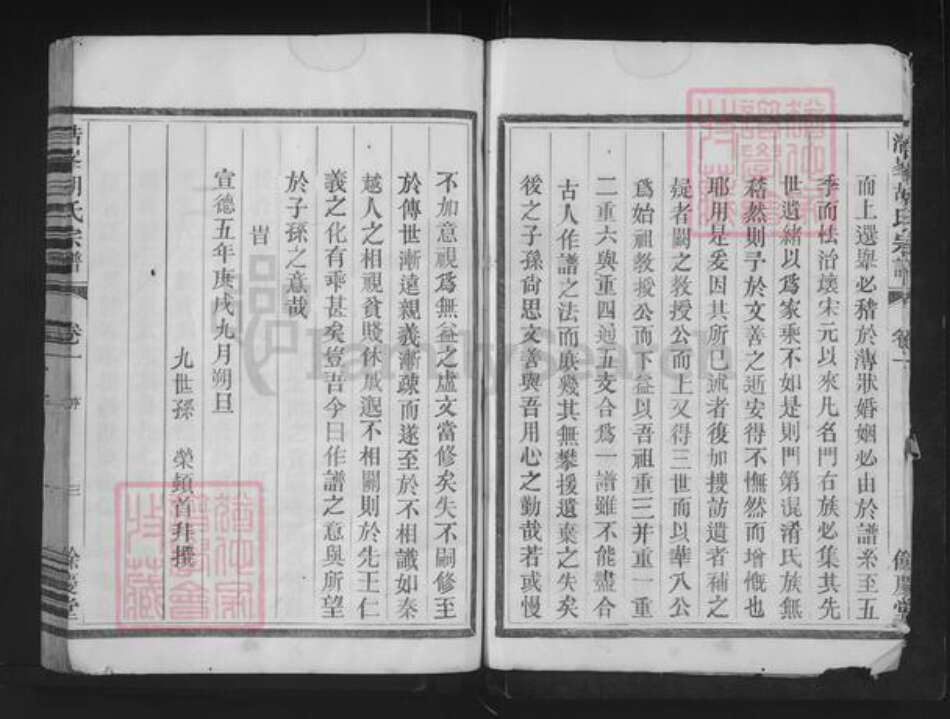 而上選舉必稽於簿狀婚姻必由於譜系至五
季而怯治壞宋元以來凡名門右族必集其先
世遺緒以爲家乘不如是則門第混淆氏族無
稽然則予於文善之逝安得不憮然而增慨也
耶用是爰因其所已述者復加搜訪遺者補之
疑者闕之教授公而上又得三世而以華八公
爲始祖教授公而下益以吾祖重三并重一重
二重六與重四通五支合爲一譜雖不能盡合
古人作譜之法而庶幾其無攀援遺棄之失矣
後之子孫尙思文善與吾用心之勤哉若或慢
不加意視爲無益之虛文當修矣失不嗣修至
於傳世漸遠親義漸疎而遂至於不相識如秦
越人之相視貧賤休戚邈不相關則於先王仁
義之化有乖甚矣豈吾今日作譜之意與所望
於子孫之意哉
旹
宣德五年庚戌九月朔旦
九世孫 榮頓首拜撰
胡氏宗譜 卷一 序 三 餘慶堂
FamilySearch